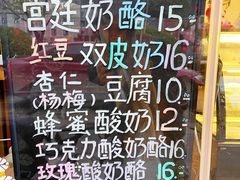 宫廷奶酪15.
红豆双皮奶16.
杏仁(杨梅)豆腐10.
蜂蜜酸奶12.
巧克力酸奶酪16.
玫瑰酸奶酪16.